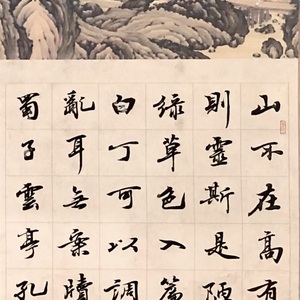 山不在高有
則靈斯是陋
綠草色入簾
白丁可以調
亂耳無案牘
蜀子雲亭孔